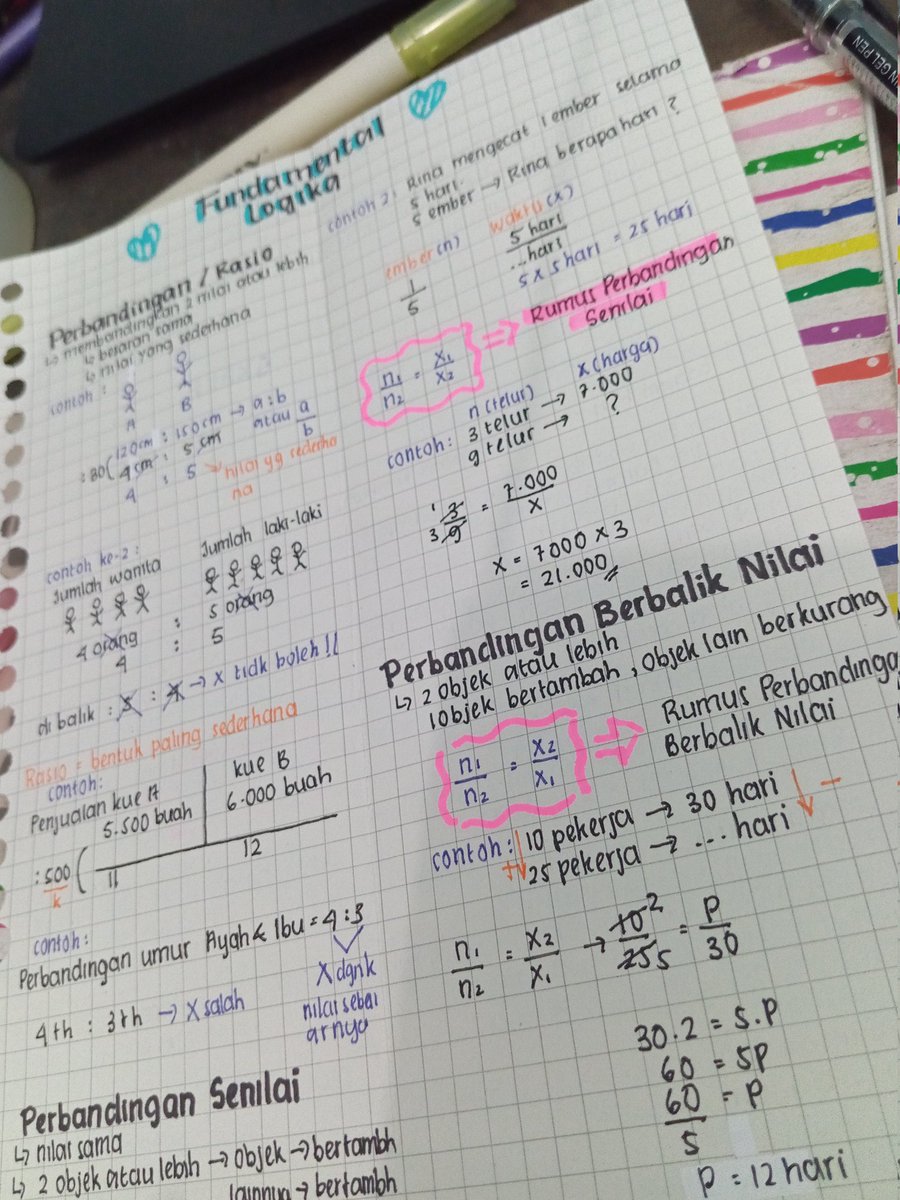 Fundamental
Logika
Perbandingan / Rasio
↳ membandingkan 2 nilai atau lebih
↳ besaran sama
↳ nilai yang sederhana
contoh :
A B
120cm : 150cm → a : b
atau a/b
:30( 4cm : 5cm
4 : 5 → nilai yg sederha
na
contoh ke-2 :
Jumlah wanita Jumlah laki-laki
4 orang : 5 orang
4 : 5
di balik : 5 : 4 → x tidk boleh !!
Rasio = bentuk paling sederhana
contoh:
Penjualan kue A kue B
5.500 buah 6.000 buah
:500 ( 11 12
k
contoh:
Perbandingan umur Ayah & Ibu = 4 : 3
4th : 3th → X salah
X dgnk
nilai sebai
arnya
Perbandingan Senilai
↳ nilai sama
↳ 2 objek atau lebih → objek → bertambh
lainnya → bertambh
contoh 2: Rina mengecat 1 ember selama
5 hari.
5 ember → Rina berapa hari ?
ember (n) waktu (x)
1/5 5 hari/...hari
5 x 5 hari = 25 hari
n₁/n₂ = x₁/x₂ ⇒ Rumus Perbandingan
Senilai
n (telur) x (harga)
contoh: 3 telur → 7.000
9 telur → ?
1 3/3 9 = 7.000/x
x = 7000 x 3
= 21.000
Perbandingan Berbalik Nilai
↳ 2 objek atau lebih
1 objek bertambah , objek lain berkurang
n₁/n₂ = x₂/x₁ ⇒ Rumus Perbandinga
Berbalik Nilai
contoh: 10 pekerja → 30 hari -
+ 25 pekerja → ... hari
n₁/n₂ = x₂/x₁ → 10 2/25 5 = P/30
30.2 = 5.P
60 = 5P
60/5 = P
P = 12 hari
GEL PEN